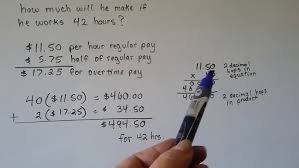 how much will he make if
he works 42 hours?
$11.50 per hour regular pay
$ 5.75 half of regular pay
$17.25 for overtime pay
40 ($11.50) = $460.00
+ 2 ($17.25) = $ 34.50
$494.50
for 42 hrs.
11.50
x
2 decimal
hops in
equation
2 decimal hops
in product